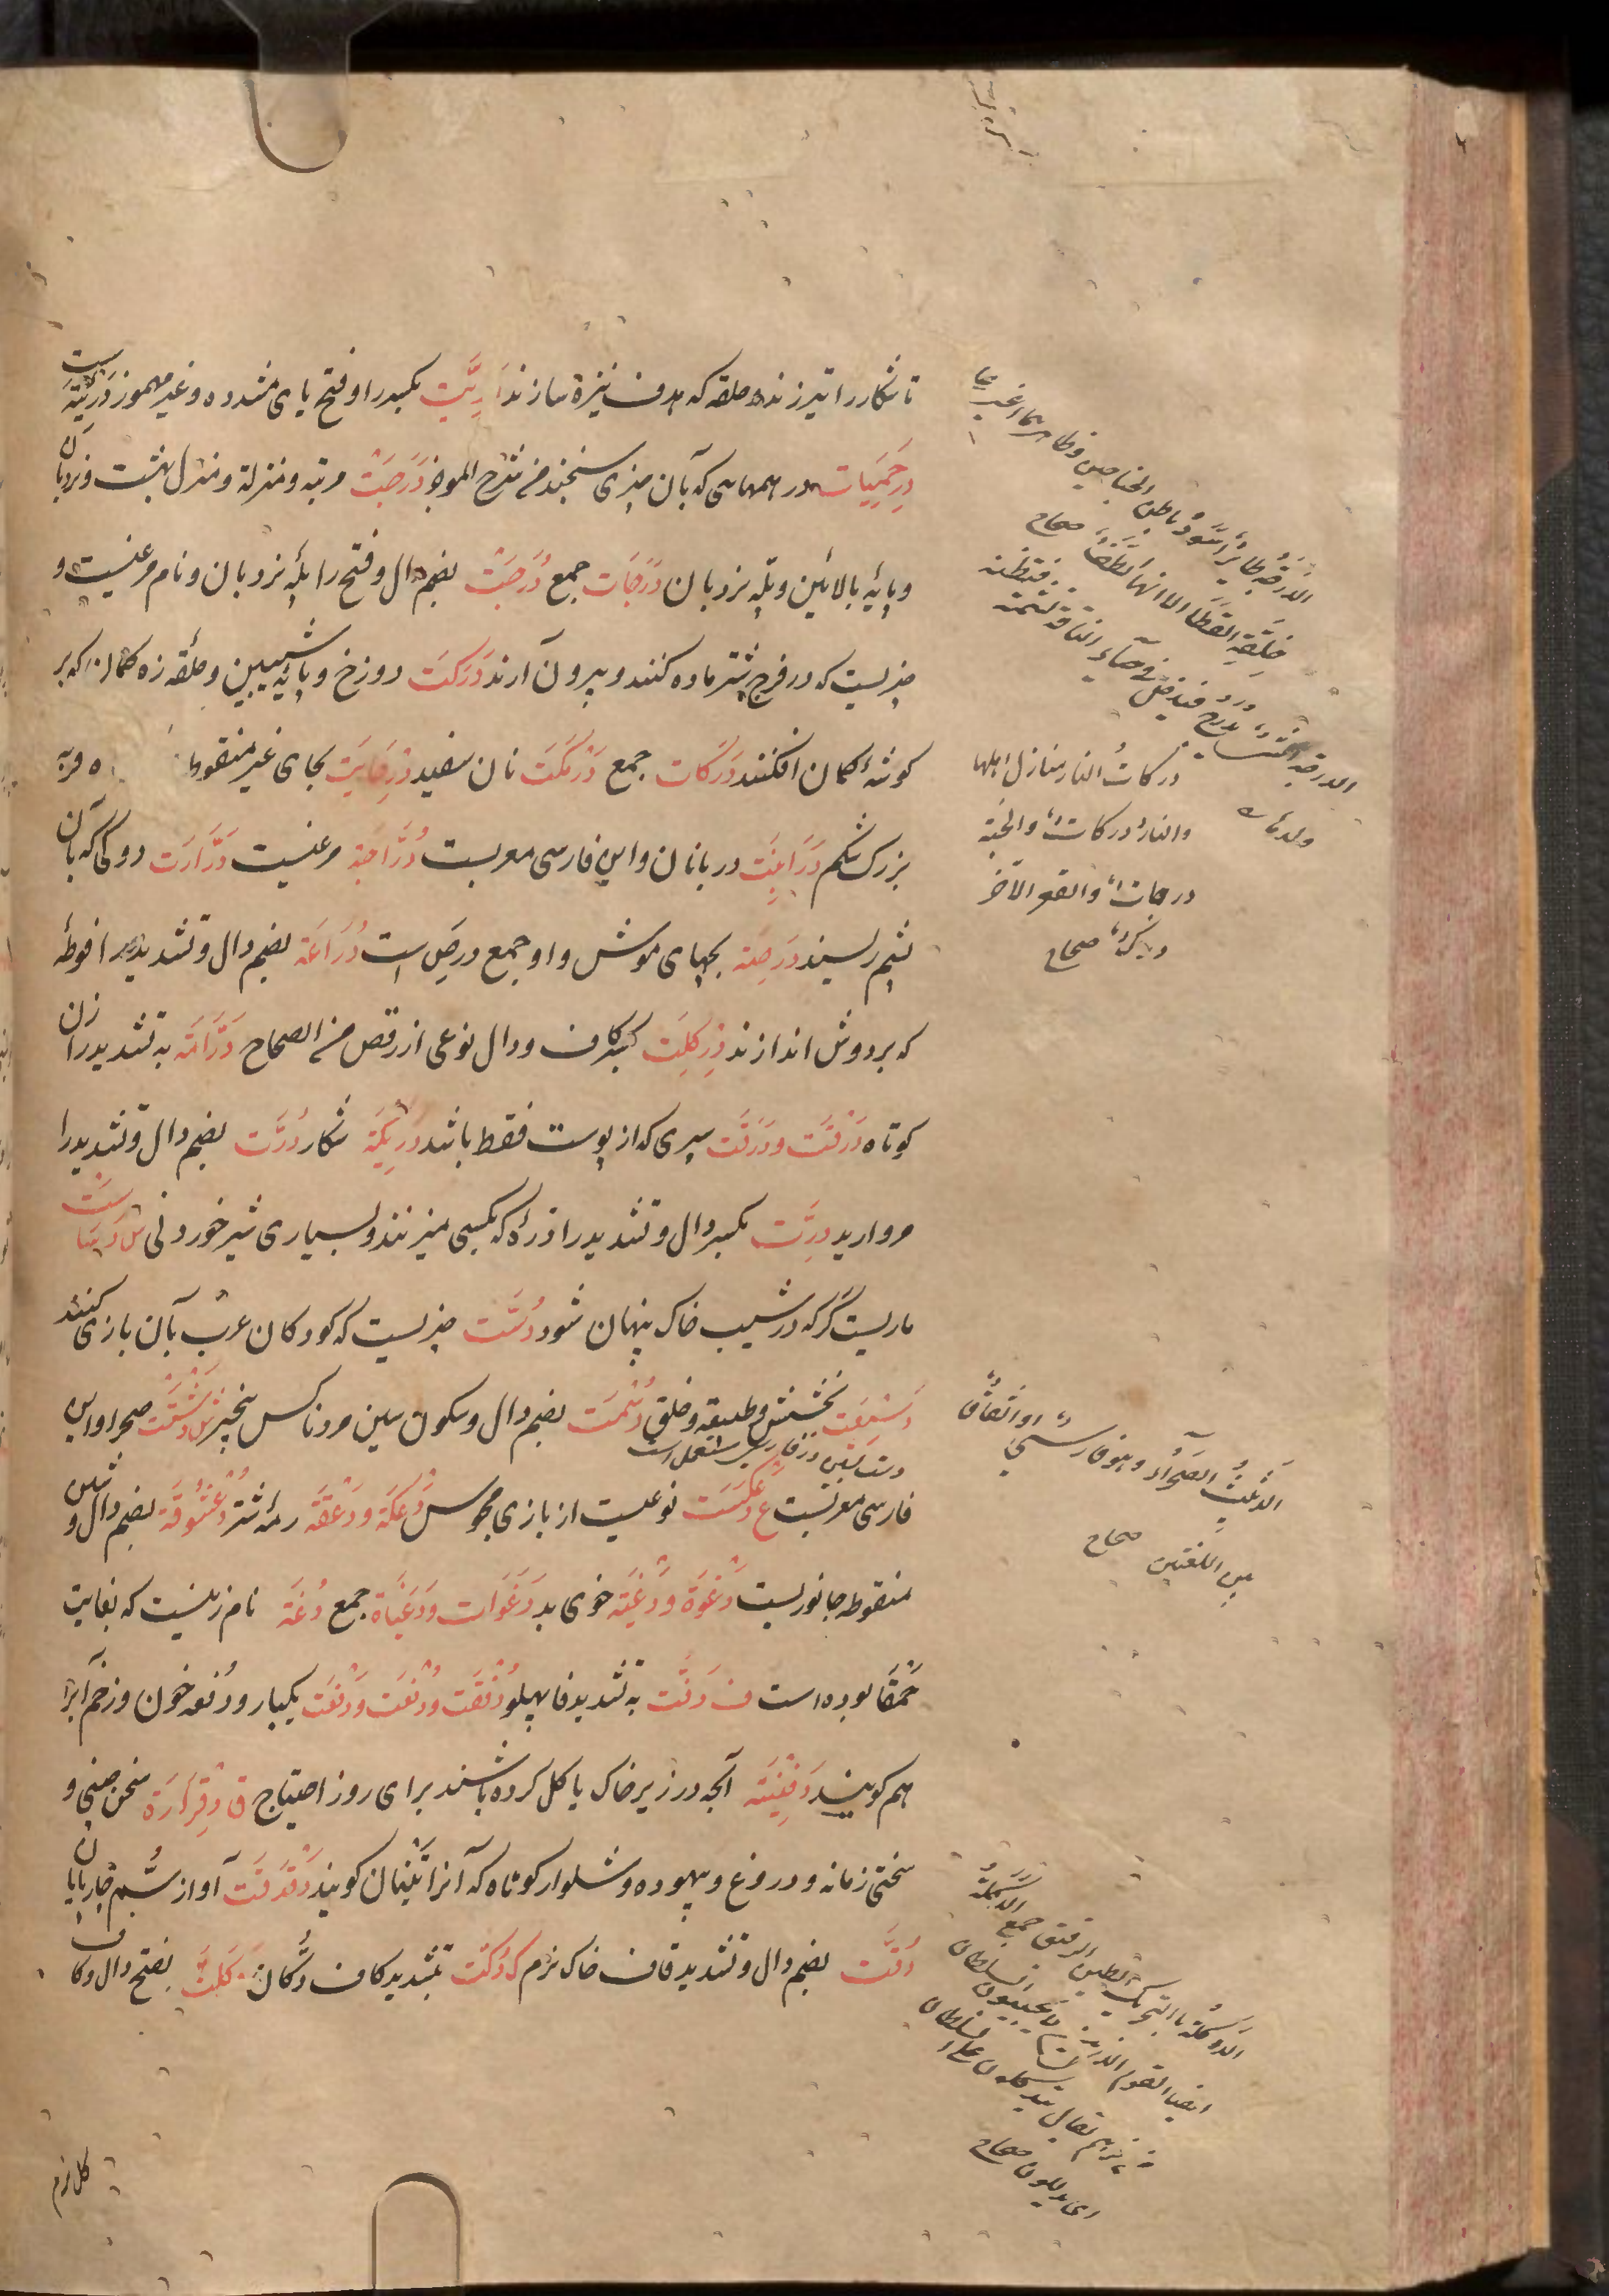 تا شکار را تیر زند و حلقه که هدف نیزه سازند دَرِیَّت بکسر را و فتح یای مشدده و غیر مهموز دَرِیَّتَه ست
دِرحَمِیَّات در همهایی که بآن چیزی سنجند من شرح الموجز دَرَجَت مرتبه و منزله و منزل بهشت و نردبان
و پایهٔ بالائین و پلهٔ نردبان دَرَجَات جمع دُرَجَت بضم دال و فتح را پلهٔ نردبان و نام مرغیست و
چیزیست که در فرج شتر ماده کنند و بیرون آرند دَرَکَت دوزخ و پایهٔ شیبین و حلقه زه کمان که بر
کوشهٔ کمان افکنند دَرَکات جمع دَرمَکَت نان سفید دِرحایَت بحای غیر منقوط فربه
بزرک شکم دَرابِنَت دربانان و این فارسی معربست دُرَّاجَة مرغیست دَرَّارَت دوکی که بآن
پشم ریسند دَرَصَة بچهای موش و او جمع درص است دُرَّاعَة بضم دال و تشدید را فوطهٔ
که بر دوش اندازند دِرکِلَت بکسر کاف و دال نوعی از رقص من الصحاح دَرَّامَة به تشدید را زن
کوتاه دَرْقَت و دَرَقَت سپری که از پوست فقط باشد دَرِیکَة شکار دُرَّت بضم دال و تشدید را
مروارید دِرَّت بکسر دال و تشدید را درّهٔ که بکسی میزنند و بسیاری شیر خوردنی س دَسَّاسَت
ماریست کَر که در شیب خاک پنهان شود دُسَّت چیزیست که کودکان عرب بآن بازی کنند
دَسِیعَت بخشش و طبیعة و خلق دُسْمَت بضم دال و سکون سین مرد ناکس بیخبر ش دَشْت صحرا و این
فارسی معربست ع دَعکَسَت نوعیست از بازی مجوس دَعکَة و دَعقَة رمهٔ شتر دُعشُوقَة بضم دال و شین
منقوطه جانوریست دَغوَة و دَغیَة خوی بد دَغَوات و دَغَیات جمع دُغَة نام زنیست که بغایت
حَمقَا بوده است ف دَفَّت به تشدید فا پهلو دُفقَت و دُفعَت و دَفعَت یکبار و دُفعه خون و زخم آبرا
هم کویند دَفِینَة آنچه در زیر خاک یا کل کرده باشند برای روز احتیاج ق دِقرارَة سخن چینی و
سختی زمانه و دروغ و بیهوده و شلوار کوتاه که آنرا تُبَّان کویند دَقدَقَت آواز سُم چارپایان
دُقَّت بضم دال و تشدید قاف خاک نرم ک دُکَّت بتشدید کاف دُکَّان دَکَلَت بفتح دال و کاف
کل نرم
الدُرَّجَة طائر اسود باطن الجناحین و ظاهرهما اغبر
خلقة القطا الا انها الطف صحاح
درکات النار منازل اهلها
والنار درکات والجنة
درجات والقعر الآخر
صحاح
الدشت الصحراء و هو فارسی او اتفاق
بین اللغتین صحاح
الدَکَلَة بالتحریک الطین الرقیق
ایضا القوم الذین لا یجیبون السلطان
من عزهم یقال یتدکلون علی السلطان
ای یدللون صحاح